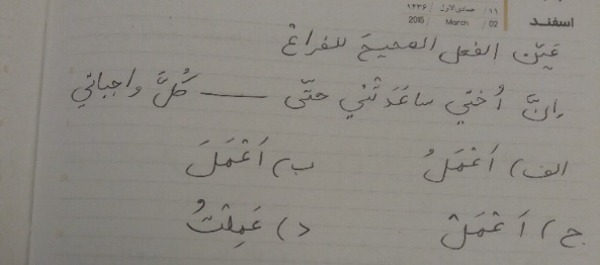 اسفند
۱۱ / جمادی الاول / ۱۴۳۶
02 / March / 2015
عَیّن الفعل الصحیحَ للفراغْ
اِنَّ اُختي ساعَدَتْني حتّی ——— کُلَّ واجباتي
الف) اَعْمَلُ ب) اَعْمَلَ
ج) اَعْمَلْ د) عَمِلْتُ